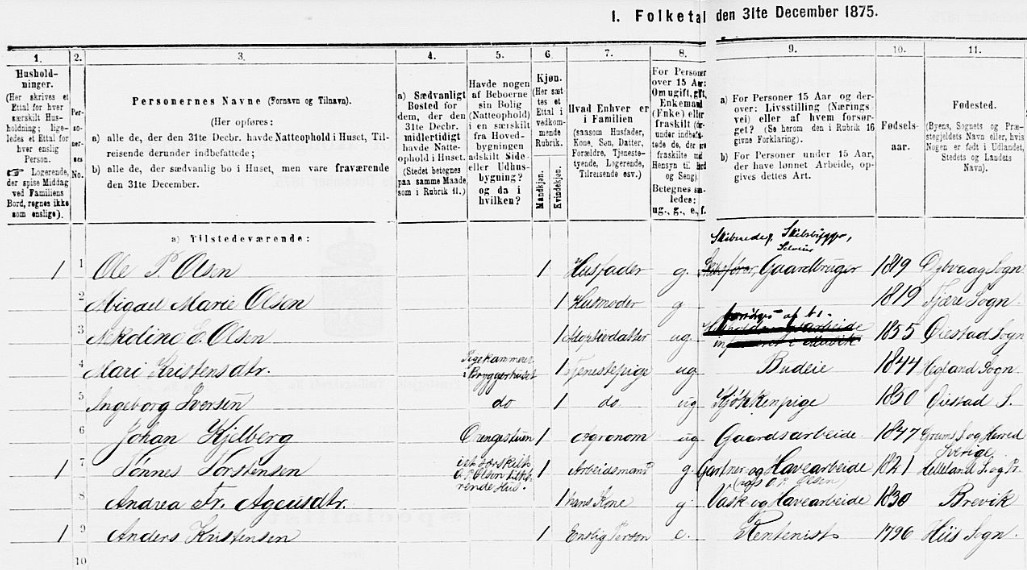 1. Folketal den 31te December 1875.
1. 2. 3. 4. 5. 6. 7. 8. 9. 10. 11.
Hushold-
ninger.
(Her skrives et
Ettal for hver
særskilt Hus-
holdning; lige-
ledes et Ettal for
hver enslig
Person.
☞ Logerende,
der spise Middag
ved Familiens
Bord, regnes ikke
som enslige).
Per-
soner-
nes
No.
Personernes Navne (Fornavn og Tilnavn).
(Her opføres:
a) alle de, der den 31te Decbr. havde Natteophold i Huset, Til-
reisende derunder indbefattede;
b) alle de, der sædvanlig bo i Huset, men vare fraværende
den 31te December.
a) Sædvanligt
Bosted for
dem, der den
31te Decbr.
midlertidigt
havde Natte-
ophold i Huset.
(Stedet betegnes
paa samme Maade
som i Rubrik 11.)
Havde nogen
af Beboerne
sin Bolig
(Natteophold)
i en særskilt
fra Hoved-
bygningen
adskilt Side-
eller Udhus-
bygning?
og da i
hvilken?
Kjøn.
(Her sæt-
tes et
Ettal i
vedkom-
mende
Rubrik.
Mandkjøn.
Kvindekjøn.
Hvad Enhver er
i Familien
(saasom Husfader,
Kone, Søn, Datter,
Forældre, Tjeneste-
tyende, Logerende,
Tilreisende osv.)
For Personer
over 15 Aar:
Om ugift, gift,
Enkemand
(Enke) eller
fraskilt
Betegnes saa-
ledes:
ug., g., e., f.
a) For Personer 15 Aar og der-
over: Livsstilling (Nærings-
vei) eller af hvem forsør-
get? (Se herom den i Rubrik 16
givne Forklaring).
b) For Personer under 15 Aar,
der have lønnet Arbeide, op-
gives dettes Art.
Fødsels-
aar.
Fødested.
(Byens, Sognets og Præ-
stegjeldets Navn eller, hvis
Nogen er født i Udlandet,
Stedets og Landets
Navn).
a) Tilstedeværende:
Skibsreder, Skibsbygger,
1 1 Ole P. Olsen 1 Husfader g. Gaardbruger 1819 Sogn
2 Abigael Marie Olsen 1 Husmoder g 1819 Fjære Sogn
3 Olsen 1 Adoptivdatter ug 1855 Øiestad Sogn
4 Mari Kristensdtr. Pigekammer i Bryggerhuset 1 Tjenestepige ug Budeie 1844 Sogn
5 Ingeborg Iversen do 1 do ug Kjøkkenpige 1850 Øiestad S.
6 Johan Kjelberg 1 Agronom ug Gaardsarbeide 1847 Sverige
1 7 Tønnes Torstensen 1 Arbeidsmand g Gartner og Havearbeide 1821 Helleland S. og Pr
(hos O. P. Olsen)
8 Andrea Fr. Ageusdtr. 1 hans Kone g. Vask og Havearbeide 1830 Brevik
1 9 Anders Kristensen 1 Enslig Person e. Rentenist 1796 Hiis Sogn
10